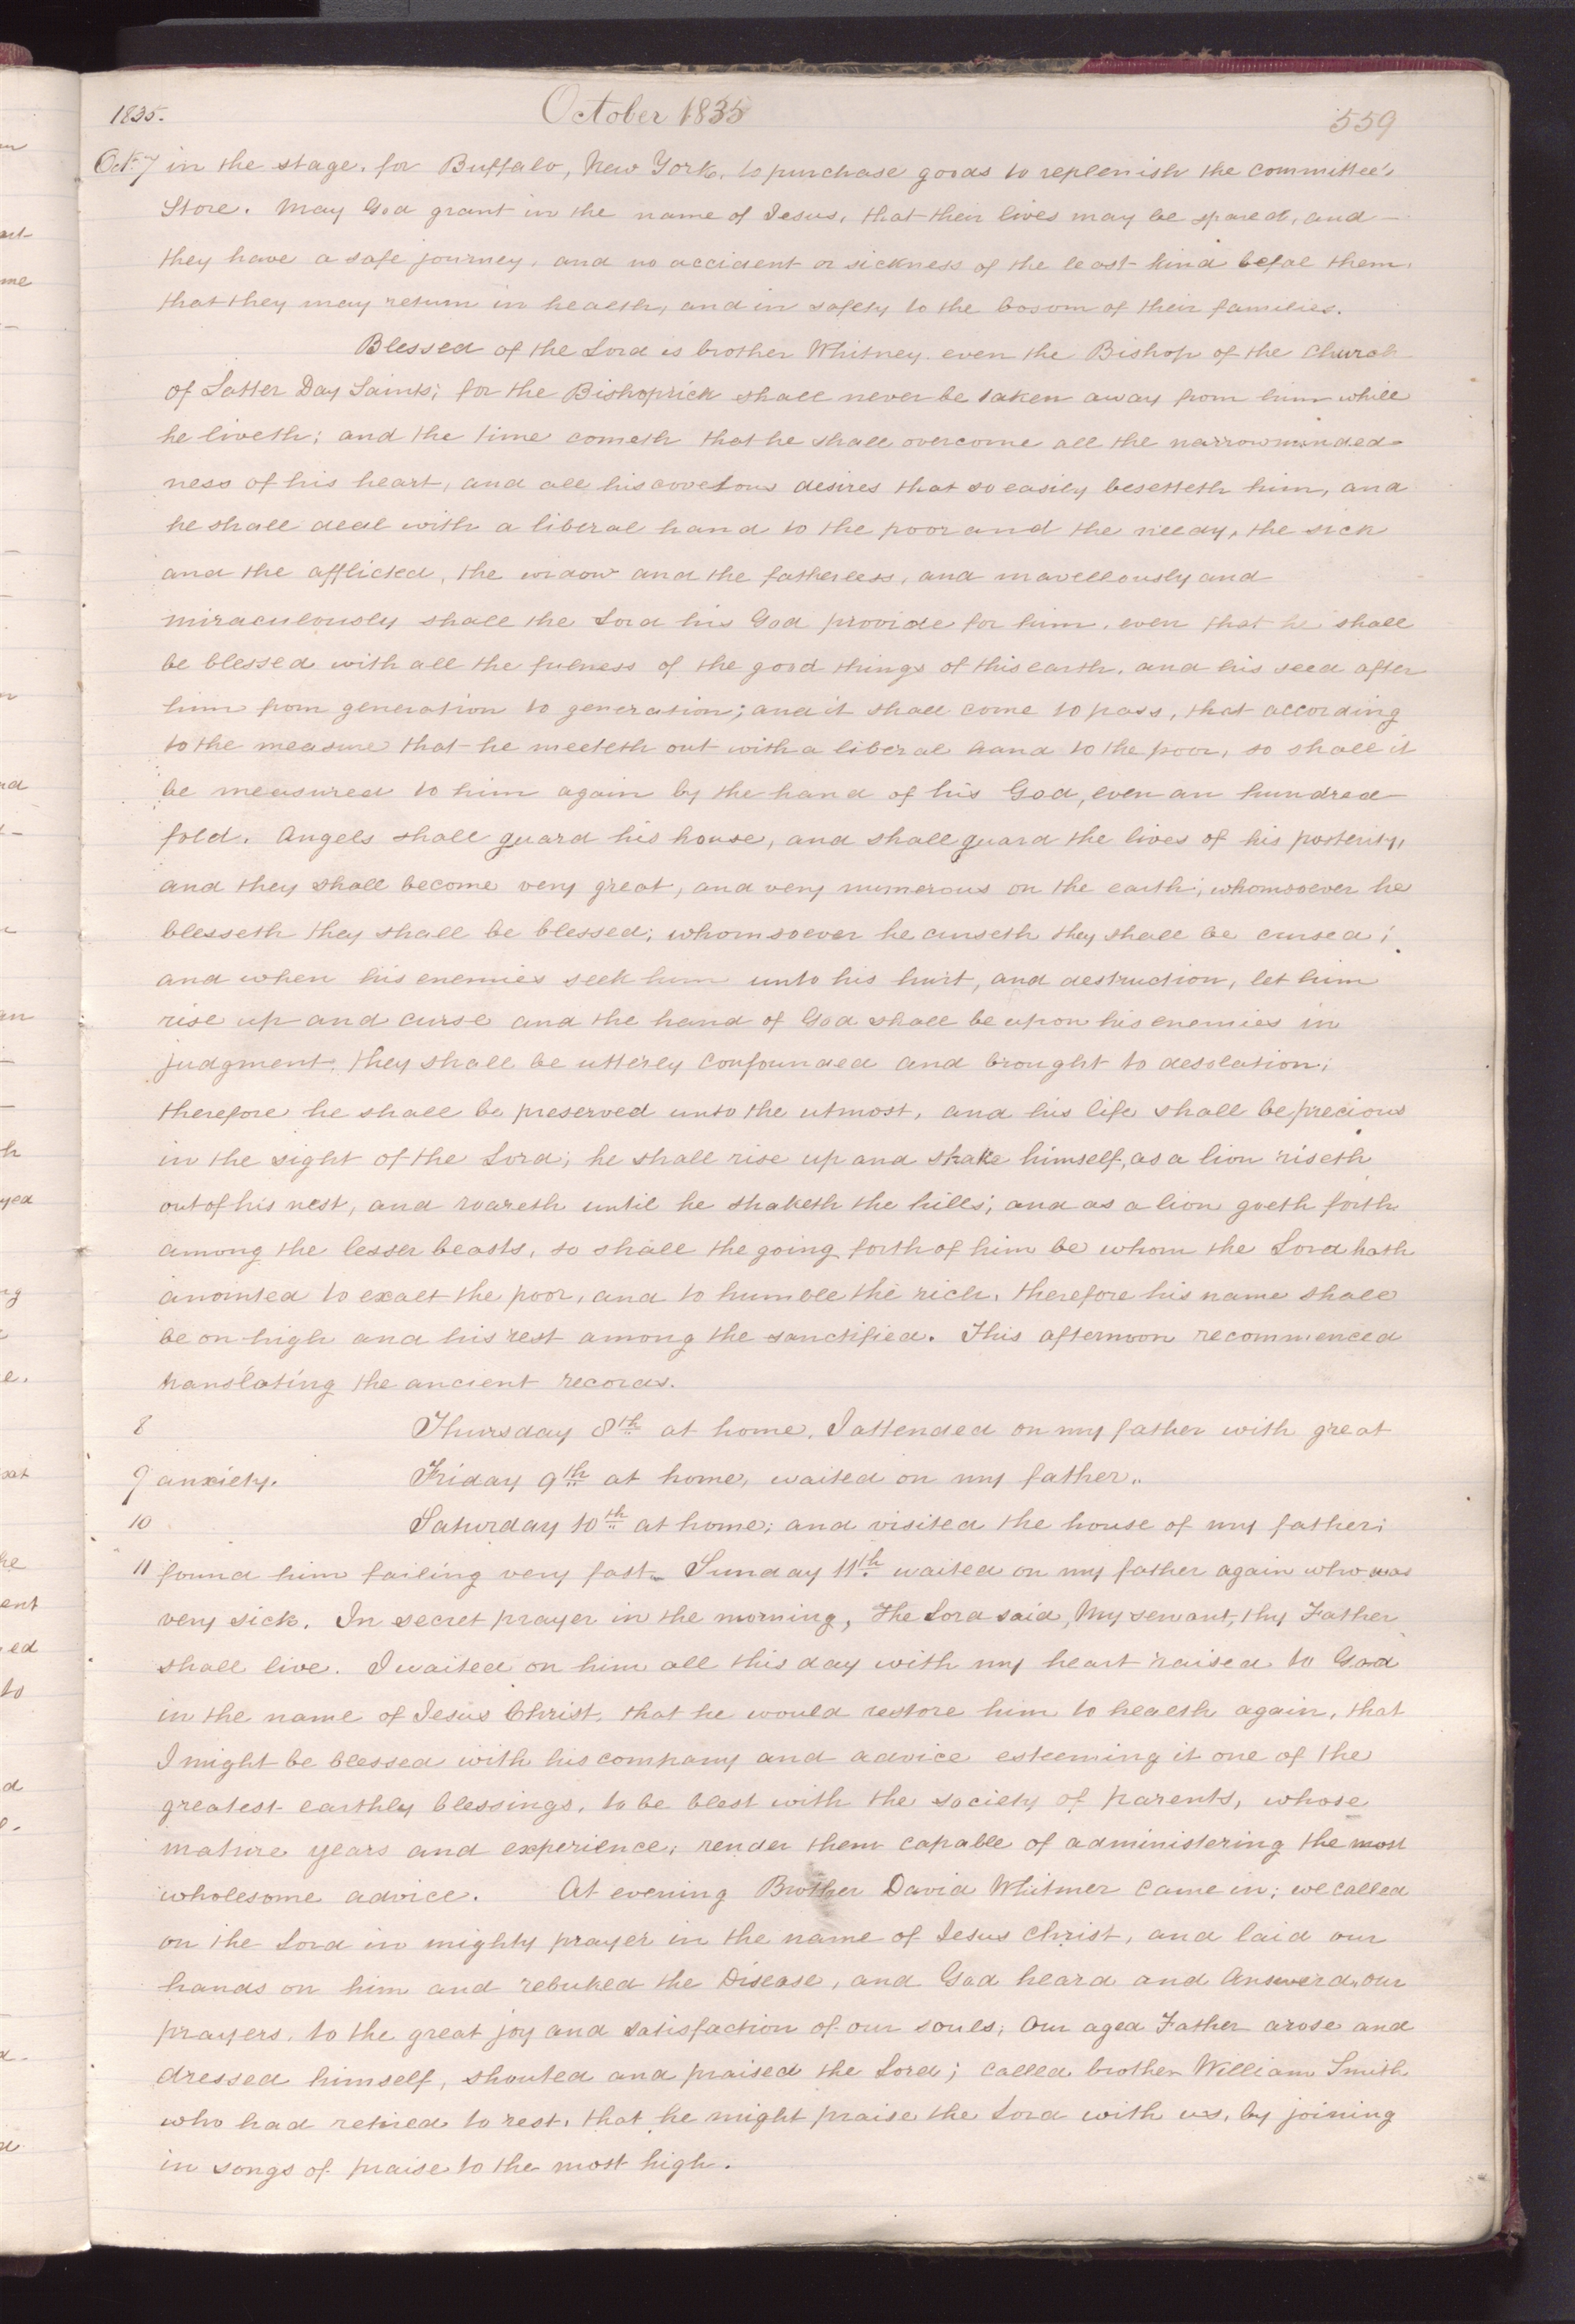 1835.
October 1835
559
Oct. 7 in the stage, for Buffalo, New York, to purchase goods to replenish the committee's
Store. May God grant in the name of Jesus, that their lives may be spared, and
they have a safe journey, and no accident or sickness of the least kind befal them,
that they may return in health, and in safety to the bosom of their families.
Blessed of the Lord is brother Whitney even the Bishop of the Church
of Latter Day Saints; for the Bishoprick shall never be taken away from him while
he liveth; and the time cometh that he shall overcome all the narrowminded-
ness of his heart, and all his covetous desires that so easily besetteth him, and
he shall deal with a liberal hand to the poor and the needy, the sick
and the afflicted, the widow and the fatherless, and mavellously and
miraculously shall the Lord his God provide for him, even that he shall
be blessed with all the fulness of the good things of this earth, and his seed after
him from generation to generation; and it shall come to pass, that according
to the measure that he meeteth out with a liberal hand to the poor, so shall it
be measured to him again by the hand of his God, even an hundred
fold. Angels shall guard his house, and shall guard the lives of his posterity,
and they shall become very great, and very numerous on the earth; whomsoever he
blesseth they shall be blessed; whomsoever he curseth they shall be cursed;
and when his enemies seek him unto his hurt, and destruction, let him
rise up and curse and the hand of God shall be upon his enemies in
judgment, they shall be utterly confounded and brought to desolation;
therefore he shall be preserved unto the utmost, and his life shall be precious
in the sight of the Lord; he shall rise up and shake himself, as a lion riseth
out of his nest, and roareth until he shaketh the hills; and as a lion goeth forth
among the lesser beasts, so shall the going forth of him be whom the Lord hath
anointed to exalt the poor, and to humble the rich, therefore his name shall
be on high and his rest among the sanctified. This afternoon recommenced
translating the ancient records.
8 Thursday 8th at home, I attended on my father with great
9 anxiety. Friday 9th at home, waited on my father.
10 Saturday 10th at home; and visited the house of my father;
11 found him failing very fast. Sunday 11th waited on my father again who was
very sick. In secret prayer in the morning, the Lord said, My servant, thy Father
shall live. I waited on him all this day with my heart raised to God
in the name of Jesus Christ, that he would restore him to health again, that
I might be blessed with his company and advice esteeming it one of the
greatest earthly blessings, to be blest with the society of parents, whose
mature years and experience, render them capable of administering the most
wholesome advice. At evening Brother David Whitmer came in; we called
on the Lord in mighty prayer in the name of Jesus Christ, and laid our
hands on him and rebuked the Disease, and God heard and Answerd our
prayers, to the great joy and satisfaction of our souls; Our aged Father arose and
dressed himself, shouted and praised the Lord; called brother William Smith
who had retired to rest, that he might praise the Lord with us, by joining
in songs of praise to the most high.